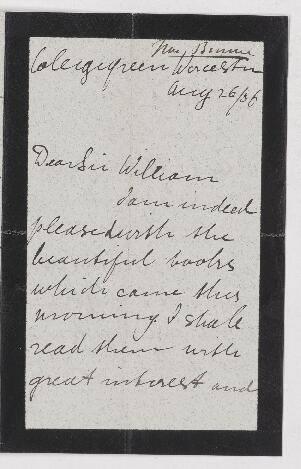 Colesgreen Worcester
Aug 26/86
Dear Sir William
I am indeed
pleased with the
beautiful books
which came this
morning. I shall
read them with
great interest and